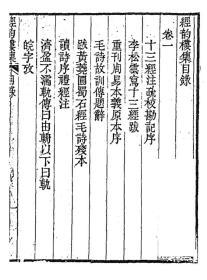 經韵樓集目錄
卷一
十三經注疏校勘記序
李松雲寫十三經跋
重刊周易本義原本序
毛詩故訓傳題辭
跋黃蕘圃蜀石經毛詩殘本
讀詩序禮經注
濟盈不濡軌傳曰由輈以下曰軌
皖字攷
經韵樓集